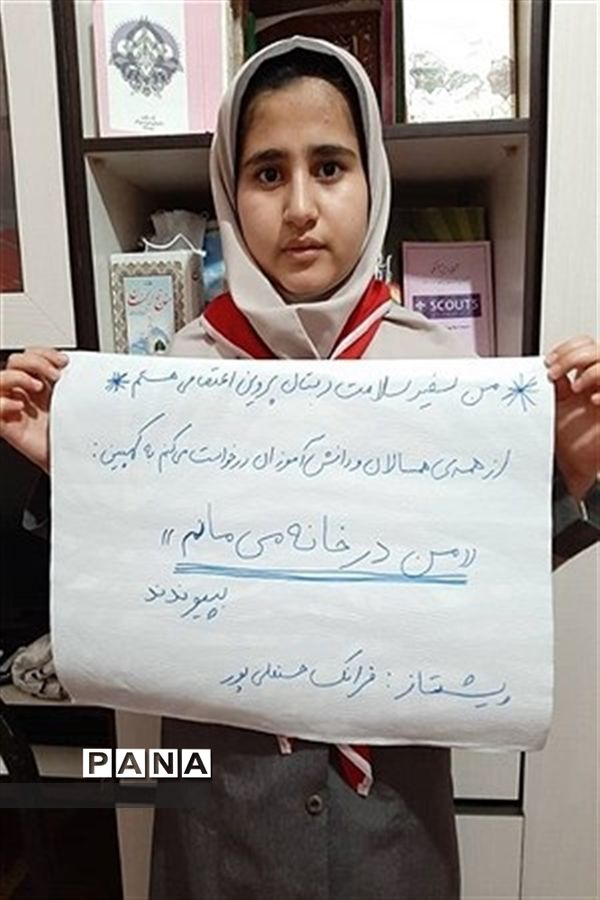 من سفیر سلامت دبستان پروین اعتصامی هستم
از همه‌ی همسالان و دانش آموزان درخواست می‌کنم به کمپین:
«من در خانه می مانم»
بپیوندند
پیشتاز: فرانک حسنعلی پور
SCOUTS
PANA